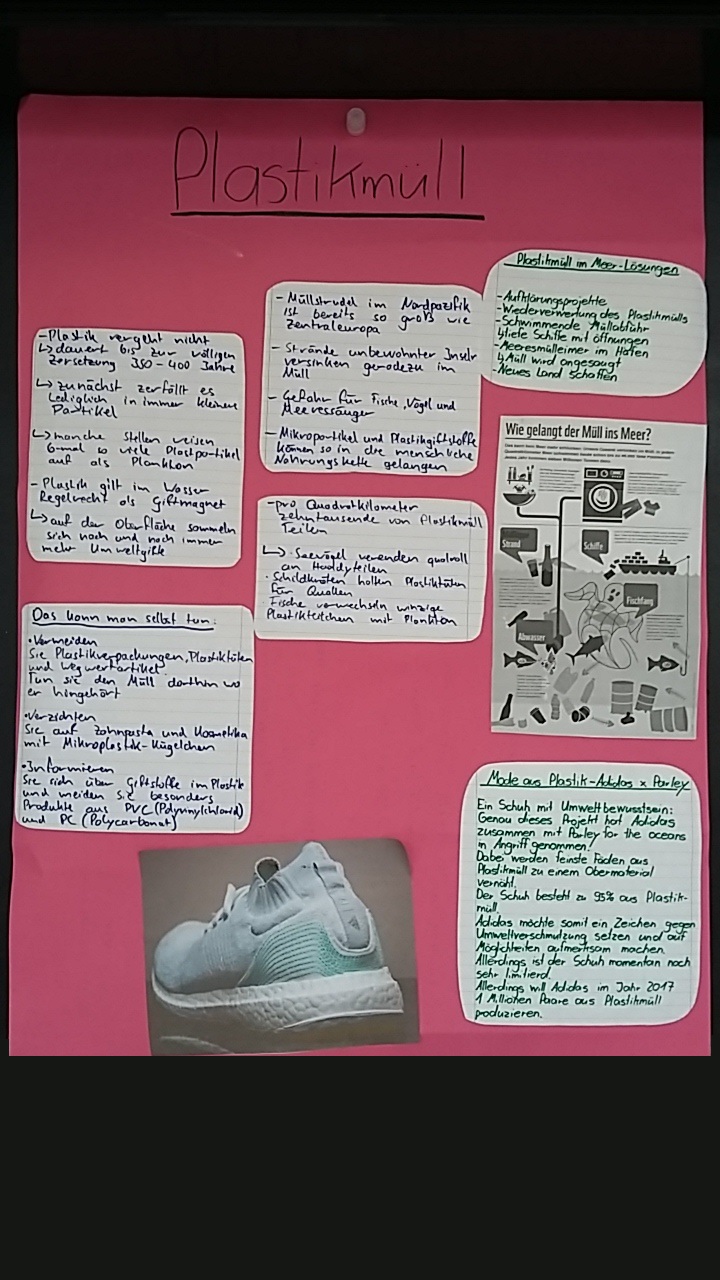 Plastikmüll
- Plastik vergeht nicht
↳ dauert bis zur völligen
Zersetzung 350-400 Jahre
↳ zunächst zerfällt es
lediglich in immer kleinere
Partikel
↳ manche Stellen weisen
6-mal so viele Plastpartikel
auf als Plankton
- Plastik gilt im Wasser
Regelrecht als Giftmagnet
↳ auf der Oberfläche sammeln
sich nach und nach immer
mehr Umweltgifte
- Müllstrudel im Nordpazifik
ist bereits so groß wie
Zentraleuropa
- Strände unbewohnter Inseln
versinken geradezu im
Müll
- Gefahr für Fische, Vögel und
Meeressäuger
- Mikropartikel und Plastikgiftstoffe
können so in die menschliche
Nahrungskette gelangen
Plastikmüll im Meer-Lösungen
- Aufklärungsprojekte
- Wiederverwertung des Plastikmülls
- Schwimmende Müllabfuhr
↳ viele Schiffe mit Öffnungen
- Meeresmülleimer im Hafen
↳ Müll wird angesaugt
- Neues Land schaffen
- pro Quadratkilometer
zehntausende von Plastikmüll
Teilen
↳ · Seevögel verenden qualvoll
an Handyteilen
· Schildkröten halten Plastiktüten
für Quallen
· Fische verwechseln winzige
Plastikteilchen mit Plankton
Wie gelangt der Müll ins Meer?
Strand
Schiffe
Fischfang
Abwasser
Das kann man selbst tun:
• Vermeiden
Sie Plastikverpackungen, Plastiktüten
und Wegwertartikel
Tun sie den Müll dorthin wo
er hingehört
• Verzichten
Sie auf Zahnpasta und Kosmetika
mit Mikroplastik-Kügelchen
• Informieren
Sie sich über Giftstoffe im Plastik
und meiden Sie besonders
Produkte aus PVC (Polyvinylchlorid)
und PC (Polycarbonat)
Mode aus Plastik-Adidas x Parley
Ein Schuh mit Umweltbewusstsein:
Genau dieses Projekt hat Adidas
zusammen mit Parley for the oceans
in Angriff genommen!
Dabei werden feinste Fäden aus
Plastikmüll zu einem Obermaterial
vernäht.
Der Schuh besteht zu 95% aus Plastik-
müll.
Adidas möchte somit ein Zeichen gegen
Umweltverschmutzung setzen und auf
Möglichkeiten aufmerksam machen.
Allerdings ist der Schuh momentan noch
sehr limitierd.
Allerdings will Adidas im Jahr 2017
1 Millionen Paare aus Plastikmüll
produzieren.